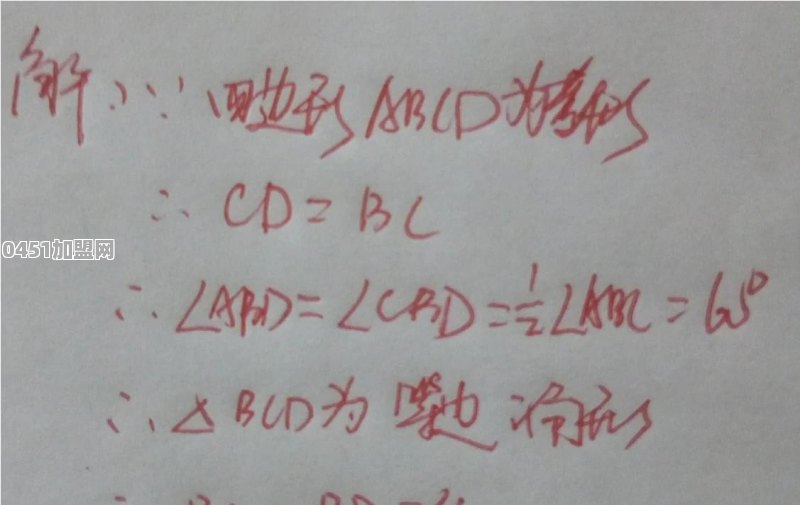 解:∵四边形ABCD为菱形
∴ CD=BC
0451加盟网
∴∠ABD=∠CBD=½∠ABC=60°
∴△BCD为等边三角形